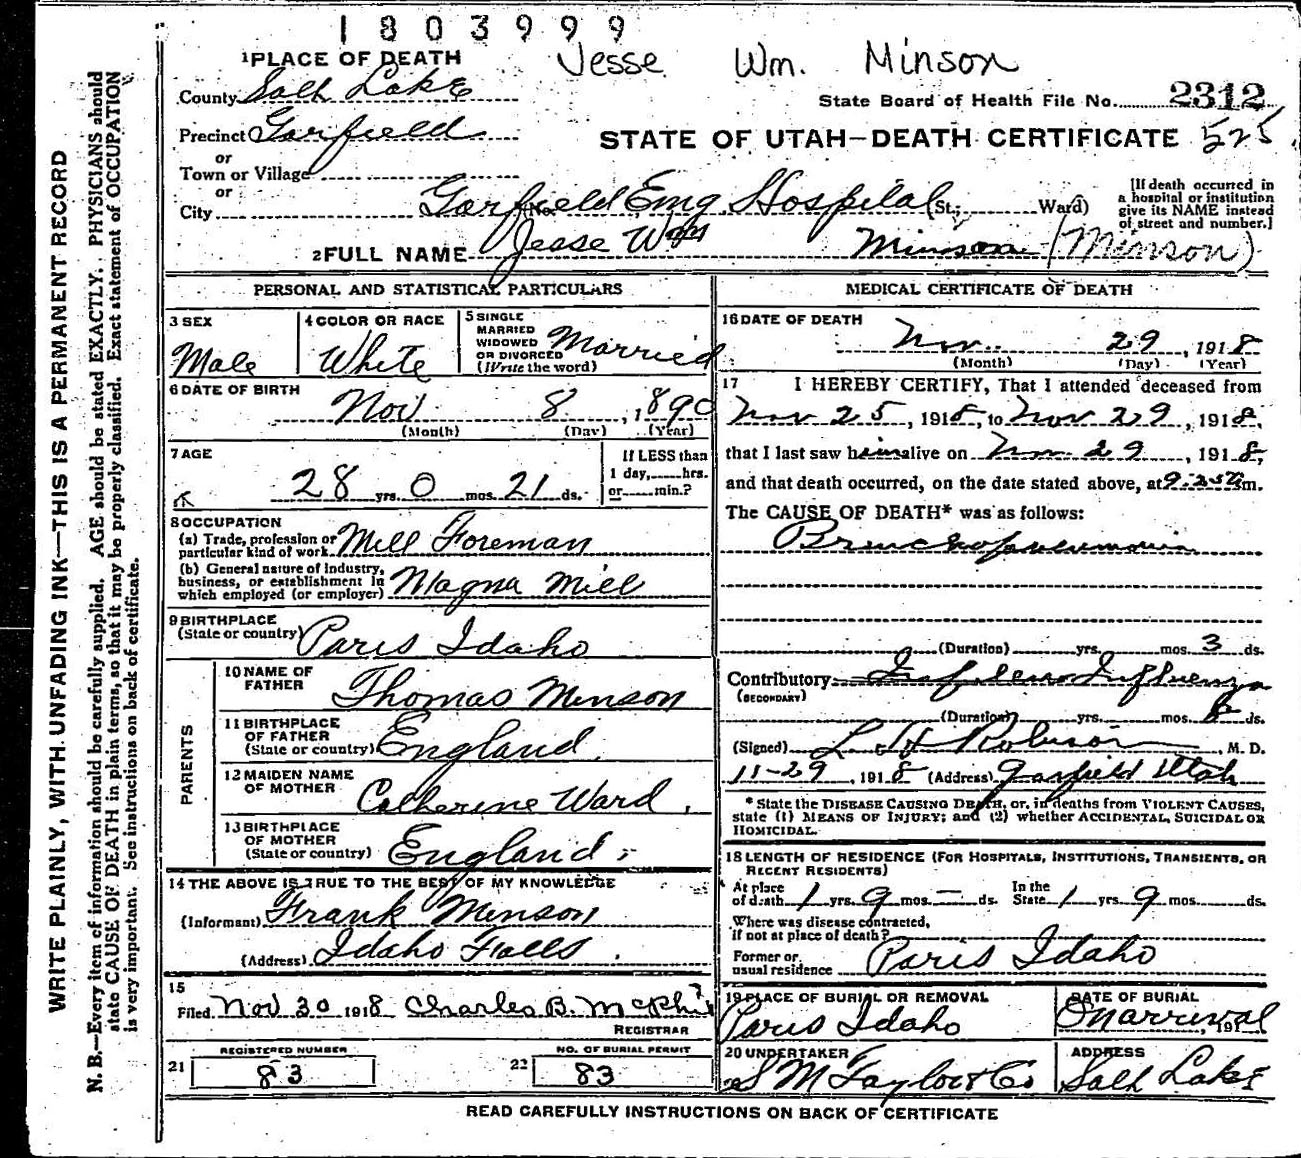 1803999
Jesse Wm. Minson
1 PLACE OF DEATH
County Salt Lake
State Board of Health File No. 2312
Precinct Garfield
STATE OF UTAH—DEATH CERTIFICATE 525
or
Town or Village
or
City Garfield Emg. Hospital (St; Ward)
[If death occurred in
a hospital or institution
give its NAME instead
of street and number.]
2 FULL NAME Jesse Wm Minson (Minson)
PERSONAL AND STATISTICAL PARTICULARS
3 SEX
Male
4 COLOR OR RACE
White
5 SINGLE
MARRIED
WIDOWED
OR DIVORCED
(Write the word)
Married
6 DATE OF BIRTH
Nov 8, 1890
(Month) (Day) (Year)
7 AGE
28 yrs. 0 mos. 21 ds.
If LESS than
1 day, hrs.
or min.?
8 OCCUPATION
(a) Trade, profession or
particular kind of work Mill Foreman
(b) General nature of industry,
business, or establishment in
which employed (or employer) Magna Mill
9 BIRTHPLACE
(State or country) Paris Idaho
PARENTS
10 NAME OF
FATHER Thomas Minson
11 BIRTHPLACE
OF FATHER
(State or country) England
12 MAIDEN NAME
OF MOTHER Catherine Ward.
13 BIRTHPLACE
OF MOTHER
(State or country) England
14 THE ABOVE IS TRUE TO THE BEST OF MY KNOWLEDGE
(Informant) Frank Minson
(Address) Idaho Falls.
15
Filed Nov 30 1918 Charles B.
REGISTRAR
21 REGISTERED NUMBER
83
22 NO. OF BURIAL PERMIT
83
MEDICAL CERTIFICATE OF DEATH
16 DATE OF DEATH
Nov. 29, 1918
(Month) (Day) (Year)
17 I HEREBY CERTIFY, That I attended deceased from
Nov 25, 1918, to Nov 29, 1918,
that I last saw him alive on Nov 29, 1918,
and that death occurred, on the date stated above, at m.
The CAUSE OF DEATH* was as follows:
Bronchopneumonia
(Duration) yrs. mos. 3 ds.
Contributory Influenza
(SECONDARY)
(Duration) yrs. mos. ds.
(Signed) L. H. Robinson, M. D.
11-29, 1918 (Address) Garfield Utah
* State the DISEASE CAUSING DEATH, or, in deaths from VIOLENT CAUSES,
state (1) MEANS OF INJURY; and (2) whether ACCIDENTAL, SUICIDAL OR
HOMICIDAL.
18 LENGTH OF RESIDENCE (FOR HOSPITALS, INSTITUTIONS, TRANSIENTS, OR
RECENT RESIDENTS)
At place
of death 1 yrs. 9 mos. – ds.
In the
State 1 yrs 9 mos. ds.
Where was disease contracted,
If not at place of death?
Former or
usual residence Paris Idaho
19 PLACE OF BURIAL OR REMOVAL
Paris Idaho
DATE OF BURIAL
On arrival, 191
20 UNDERTAKER
S M Taylor & Co
ADDRESS
Salt Lake
READ CAREFULLY INSTRUCTIONS ON BACK OF CERTIFICATE
WRITE PLAINLY, WITH UNFADING INK—THIS IS A PERMANENT RECORD
N. B.—Every item of information should be carefully supplied. AGE should be stated EXACTLY. PHYSICIANS should
state CAUSE OF DEATH in plain terms, so that it may be properly classified. Exact statement of OCCUPATION
is very important. See instructions on back of certificate.